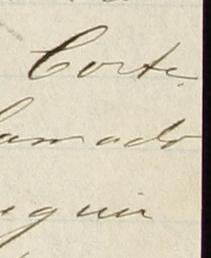 Corte.
lamado
eguir